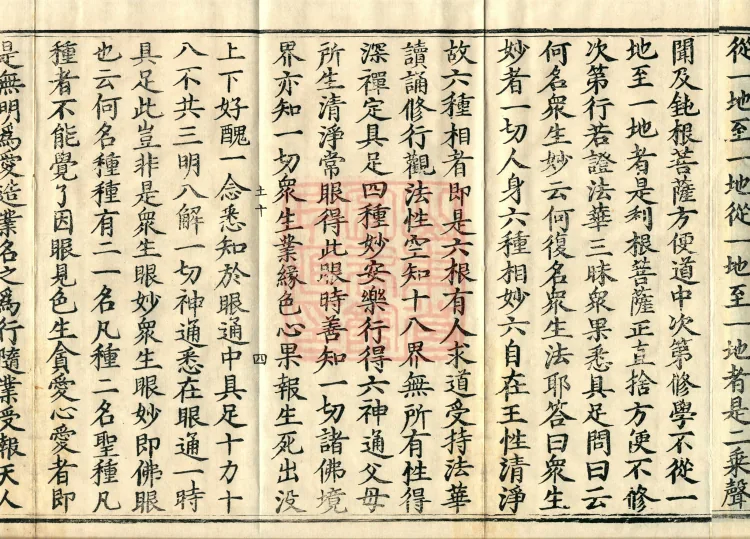 從一地至一地從一地至一地者是二乘聲
聞及鈍根菩薩方便道中次第修學不從一
地至一地者是利根菩薩正直捨方便不修
次第行若證法華三昧衆果悉具足問曰云
何名衆生妙云何復名衆生法耶答曰衆生
妙者一切人身六種相妙六自在王性清淨
故六種相者即是六根有人求道受持法華
讀誦修行觀法性空知十八界無所有性得
深禪定具足四種妙安樂行得六神通父母
所生清淨常眼得此眼時善知一切諸佛境
界亦知一切衆生業緣色心果報生死出没
土十
四
上下好醜一念悉知於眼通中具足十力十
八不共三明八解一切神通悉在眼通一時
具足此豈非是衆生眼妙衆生眼妙即佛眼
也云何名種種有二一名凡種二名聖種凡
種者不能覺了因眼見色生貪愛心愛者即
是無明爲愛造業名之爲行隨業受報天人